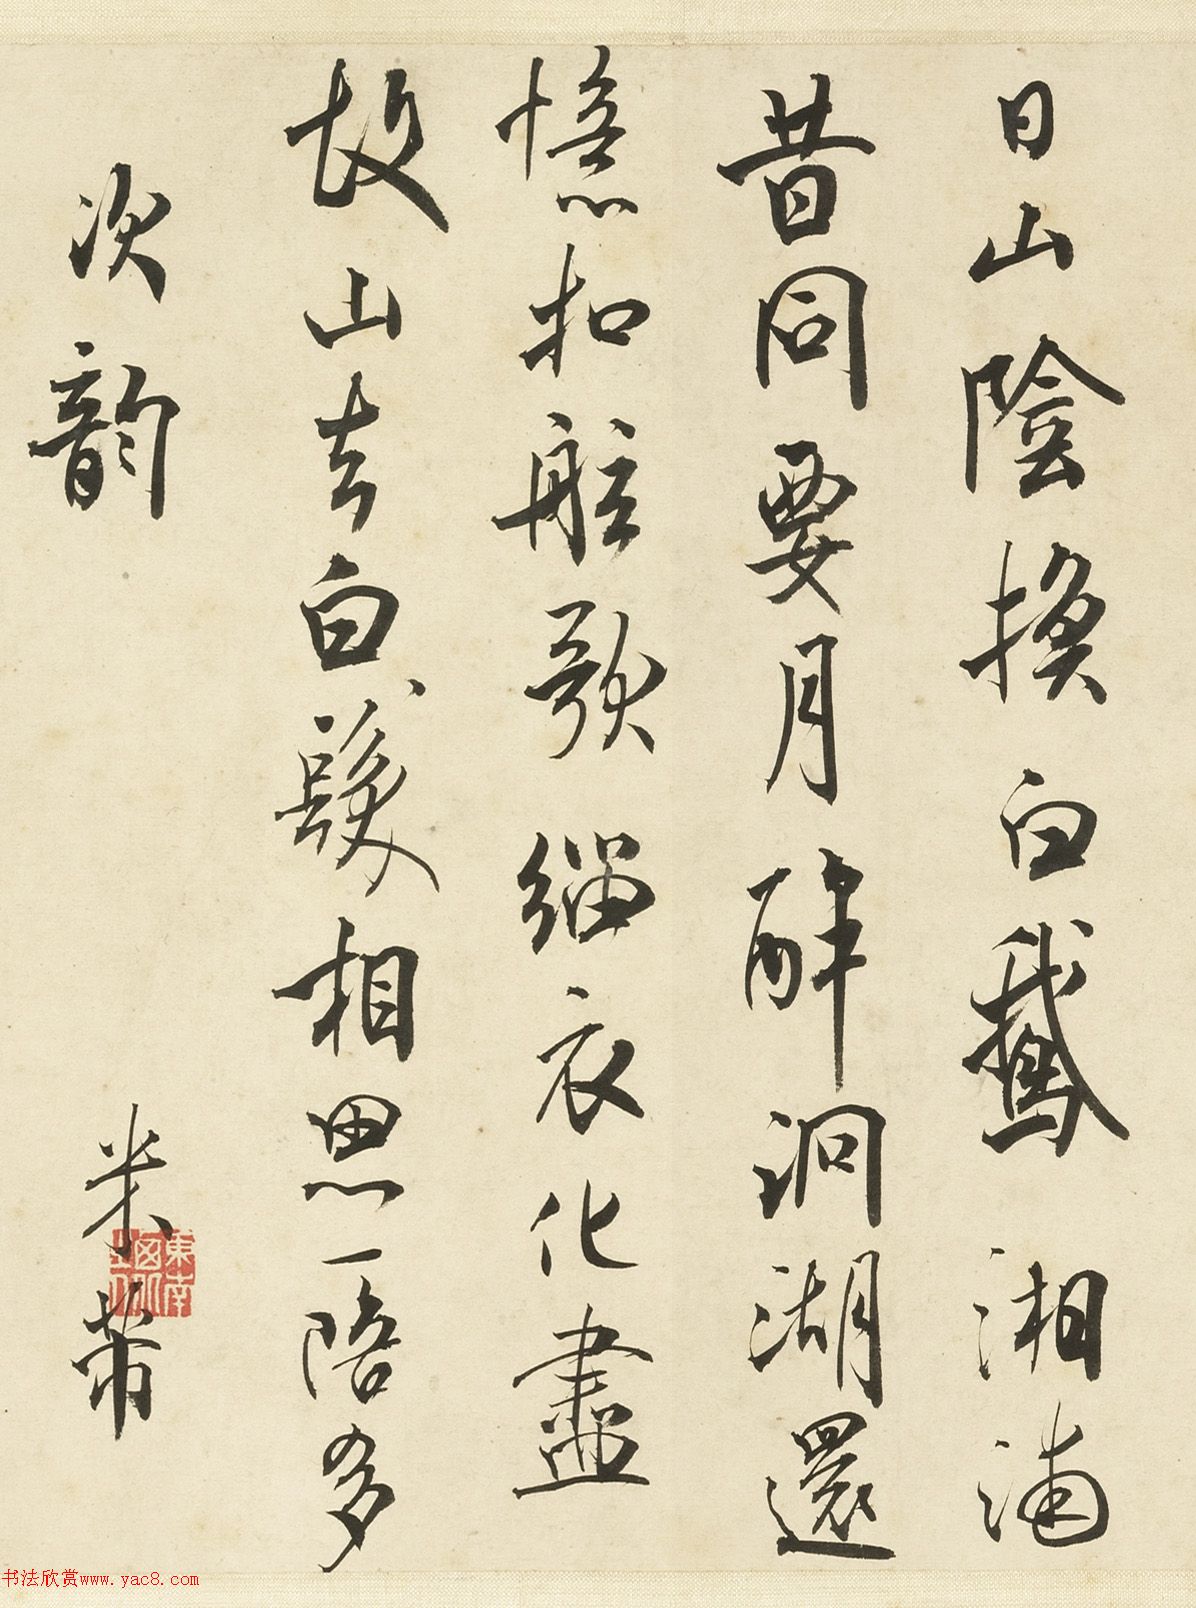 日山陰換白鵝湘浦
昔同要月醉洞湖還
憶扣舷歌緇衣化盡
故山去白髮相思一陪多
次韵
米芾
書法欣賞www.yac8.com